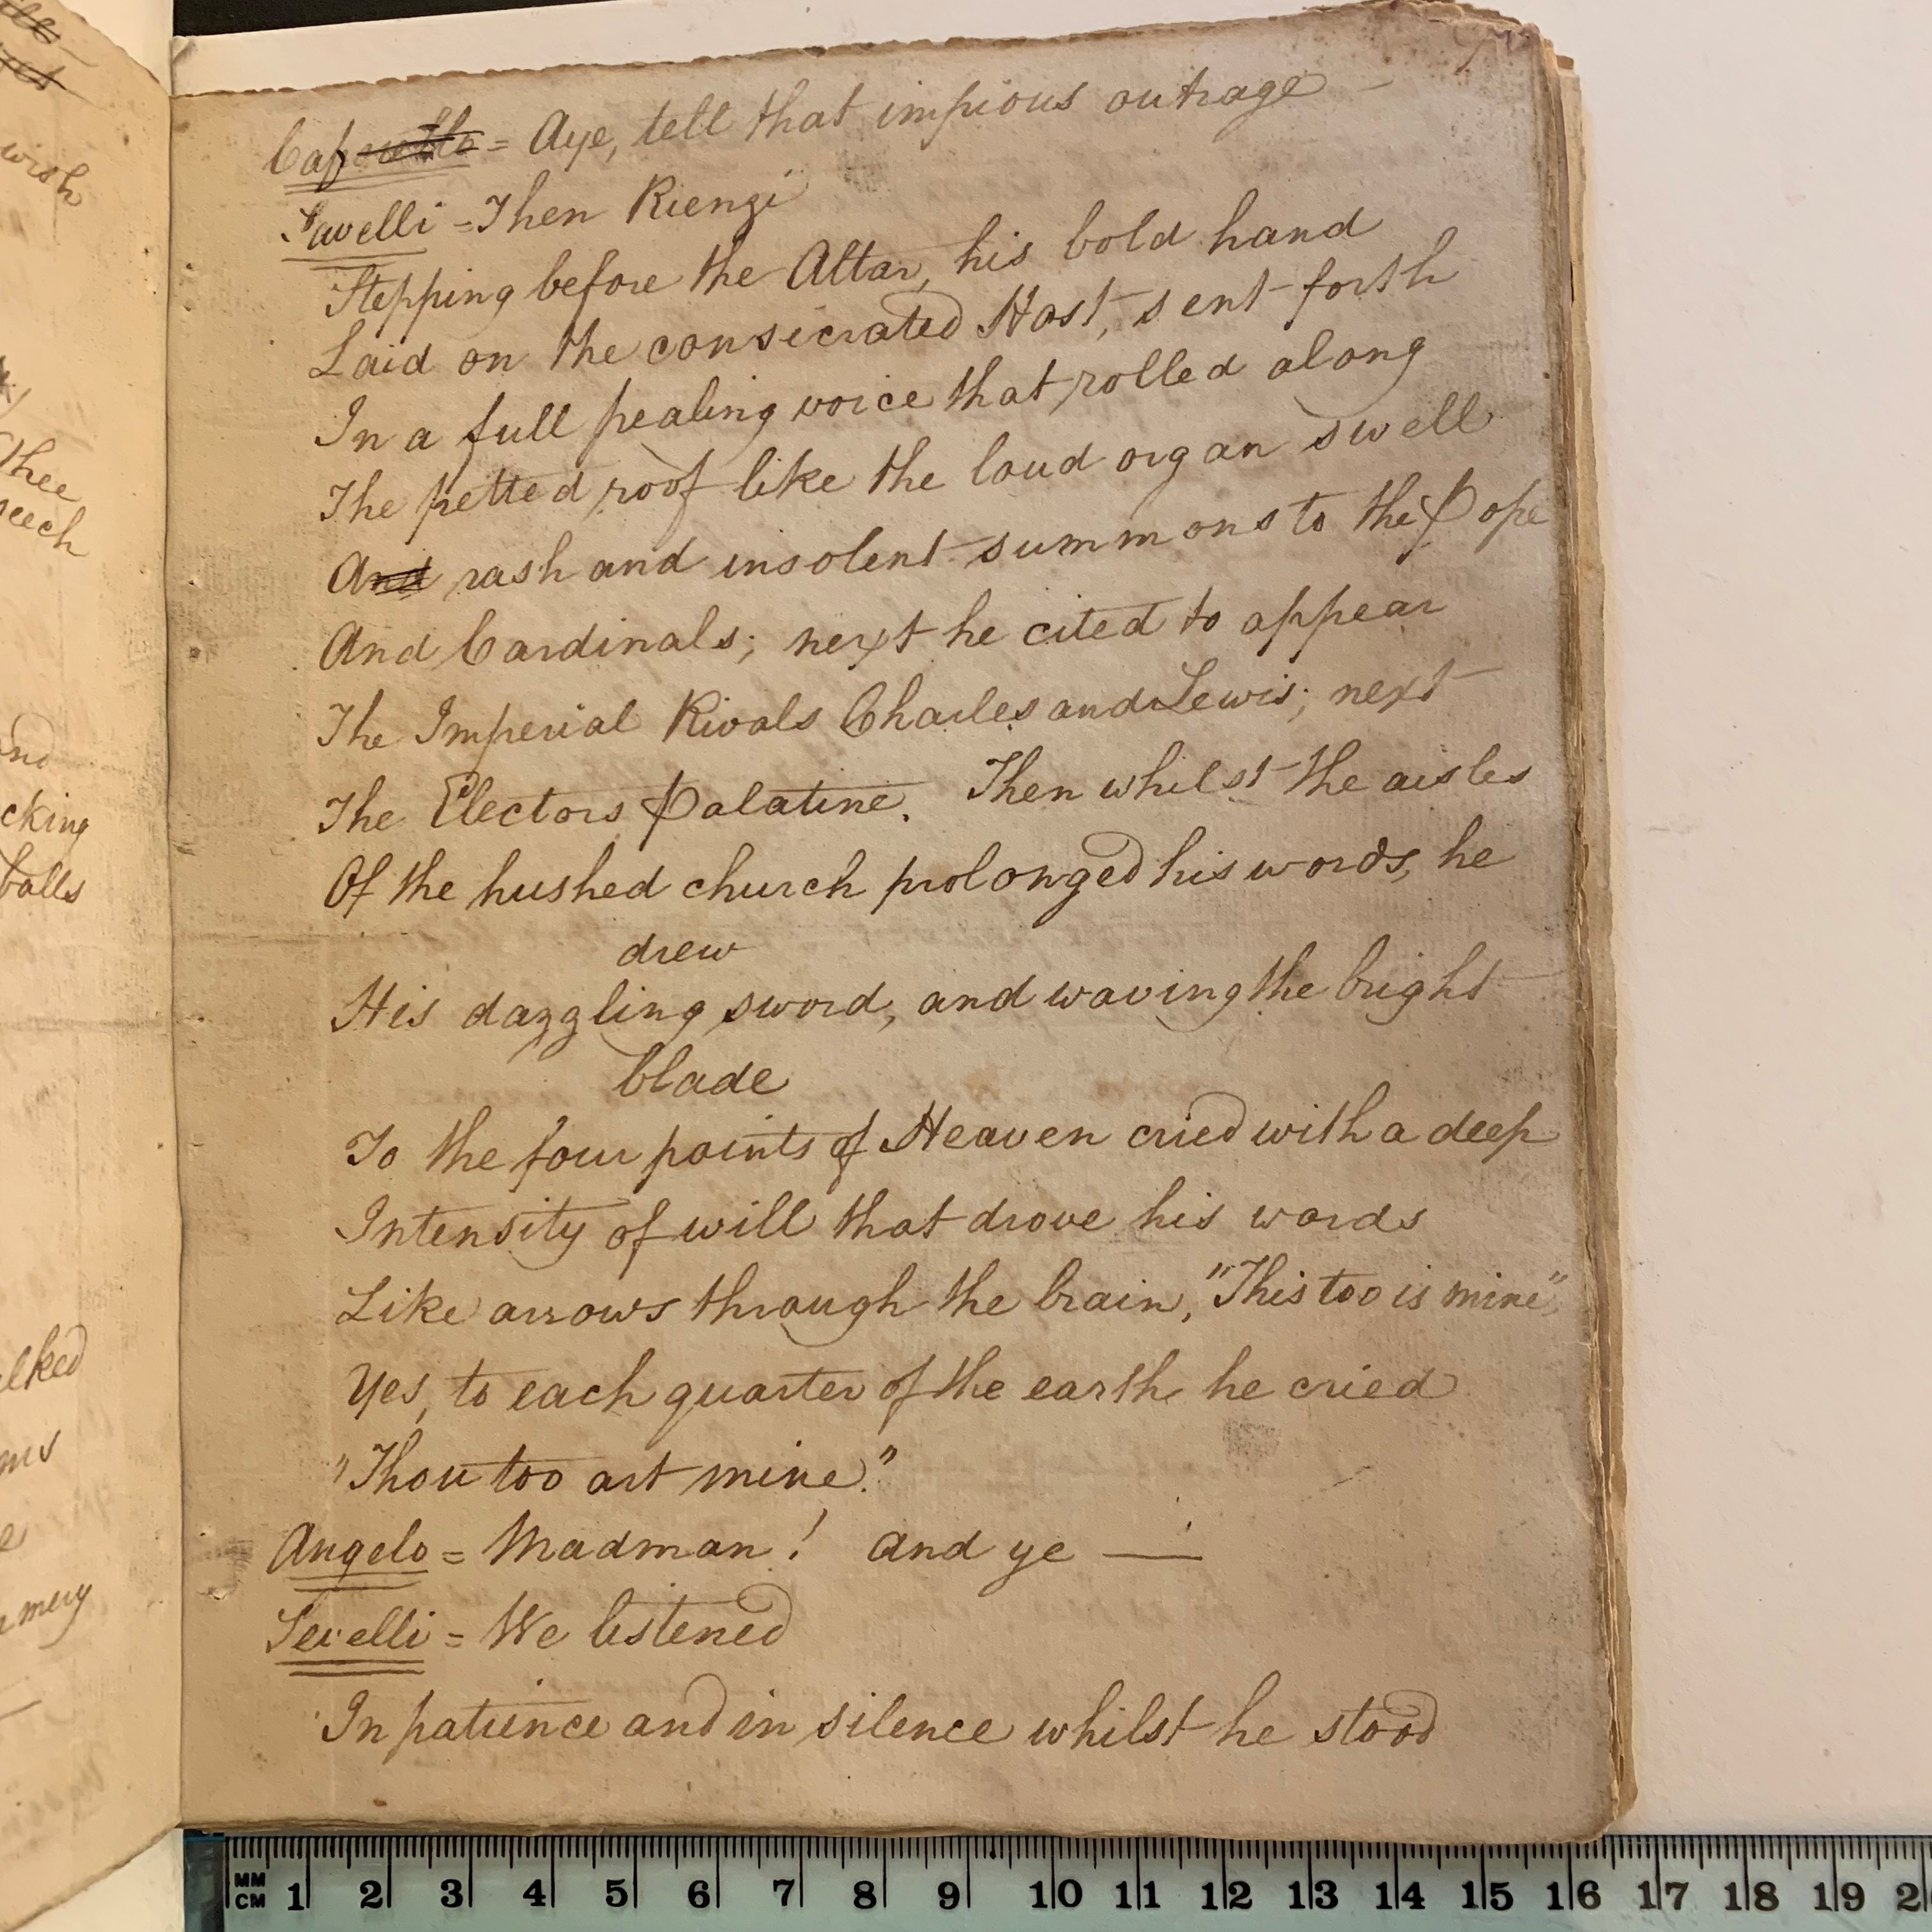 Cap = Aye, tell that impious outrage –
Savelli = Then Rienzi
Stepping before the Altar, his bold hand
Laid on the consecrated Host, sent forth
In a full pealing voice that rolled along
The fretted roof like the loud organ swell
And rash and insolent summons to the Pope
And Cardinals; next he cited to appear
The Imperial Rivals Charles and Lewis; next
The Electors Palatine. Then whilst the aisles
Of the hushed church prolonged his words, he
drew
His dazzling sword, and waving the bright
blade
To the four points of Heaven cried with a deep
Intensity of will that drove his words
Like arrows through the brain, "This too is mine",
Yes, to each quarter of the earth he cried
"Thou too art mine."
Angelo = Madman! And ye —
Savelli = We listened
In patience and in silence whilst he stood
wish
Thee
eech
cking
balls
lked
MM
CM 1 2 3 4 5 6 7 8 9 10 11 12 13 14 15 16 17 18 19 2